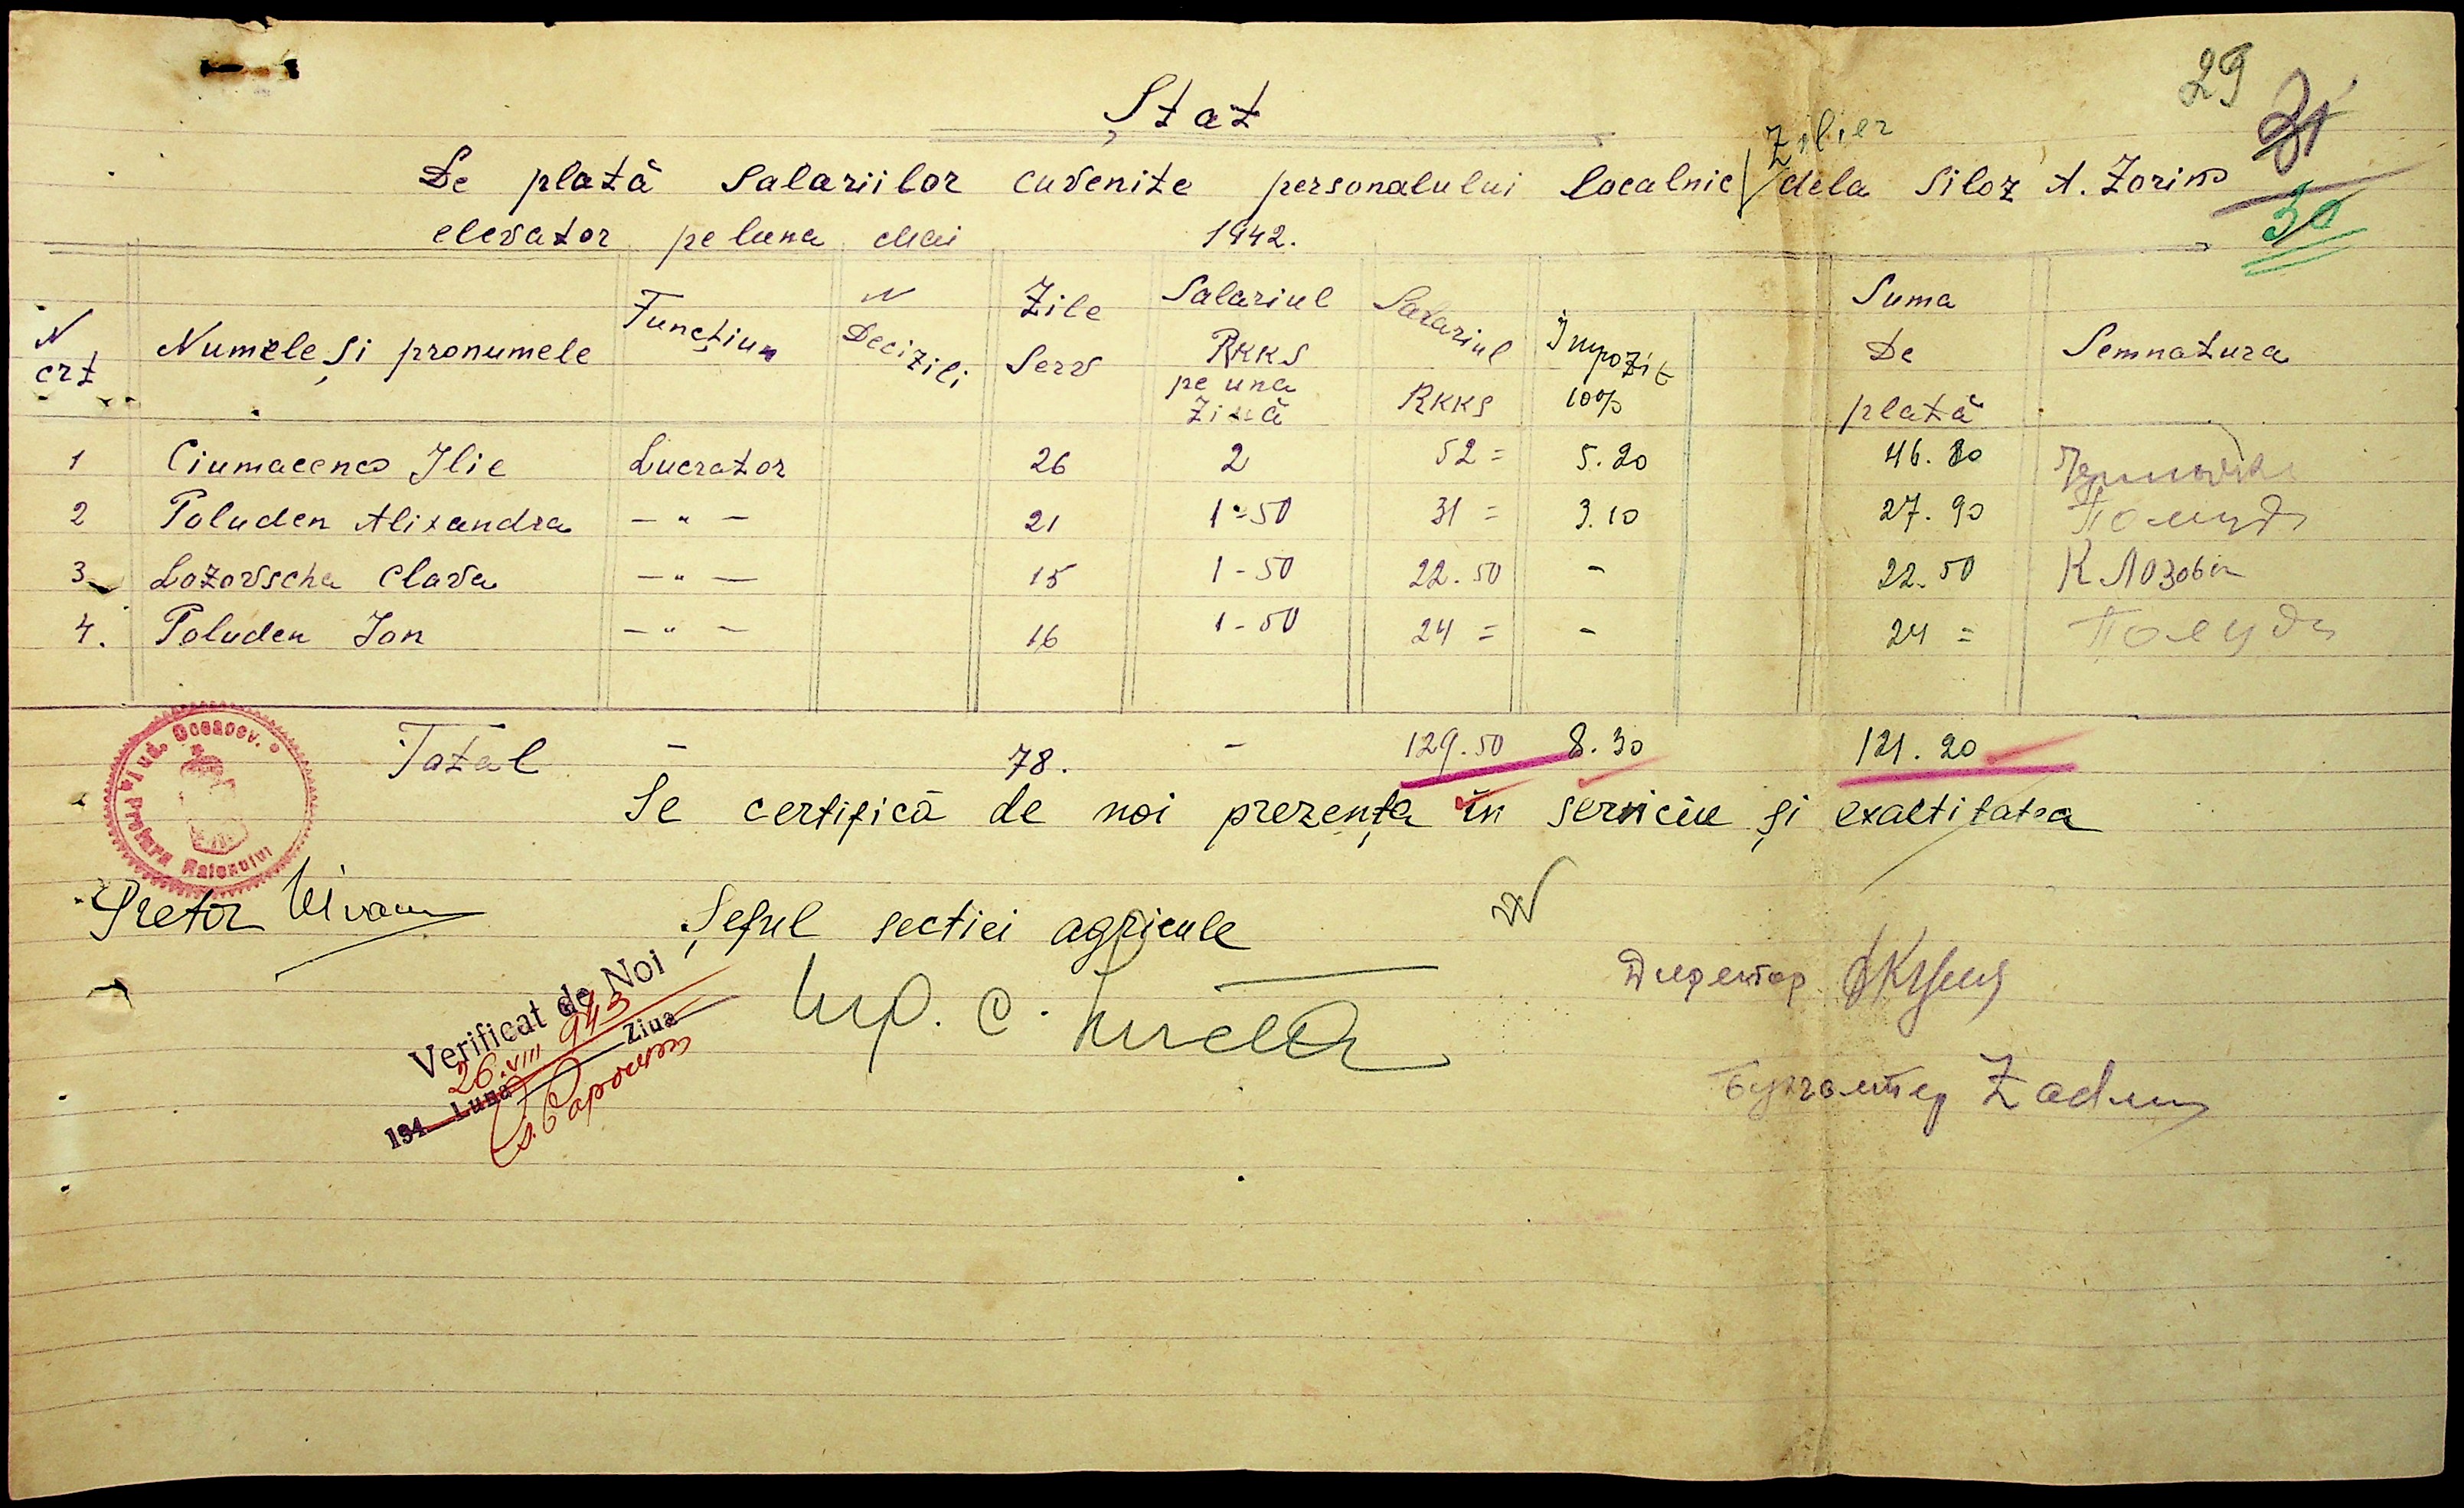 29
31
30
Ștat
De plată Salariilor cuvenite personalului localnic Zilier dela Siloz A. Zorino
elevator pe luna Mai 1942.
N crt | Numele și pronumele | Funcțiun | N Decizili | Zile Serv | Salariul RKKS pe una Ziuă | Salariul RKKS | Impozit 10% | Suma De plată | Semnatura
1 Ciumacenco Ilie Lucrator 26 2 52= 5.20 46.80
2 Poluden Alixandra — " — 21 1=50 31= 3.10 27.90 Полуд
3 Lozovscha Clava — " — 15 1-50 22.50 - 22.50 К Лозовск
4. Poluden Ion — " — 16 1-50 24= - 24= Полуд
Total - 78. - 129.50 8.30 121.20
Se certifică de noi prezența în serviciu și exactitatea
Jud. Oceacov. Pretura Raionului
Pretor
Șeful sectiei agricule
Директор
Бухгалтер
Verificat de Noi
26.VIII 943
194 Luna Ziua